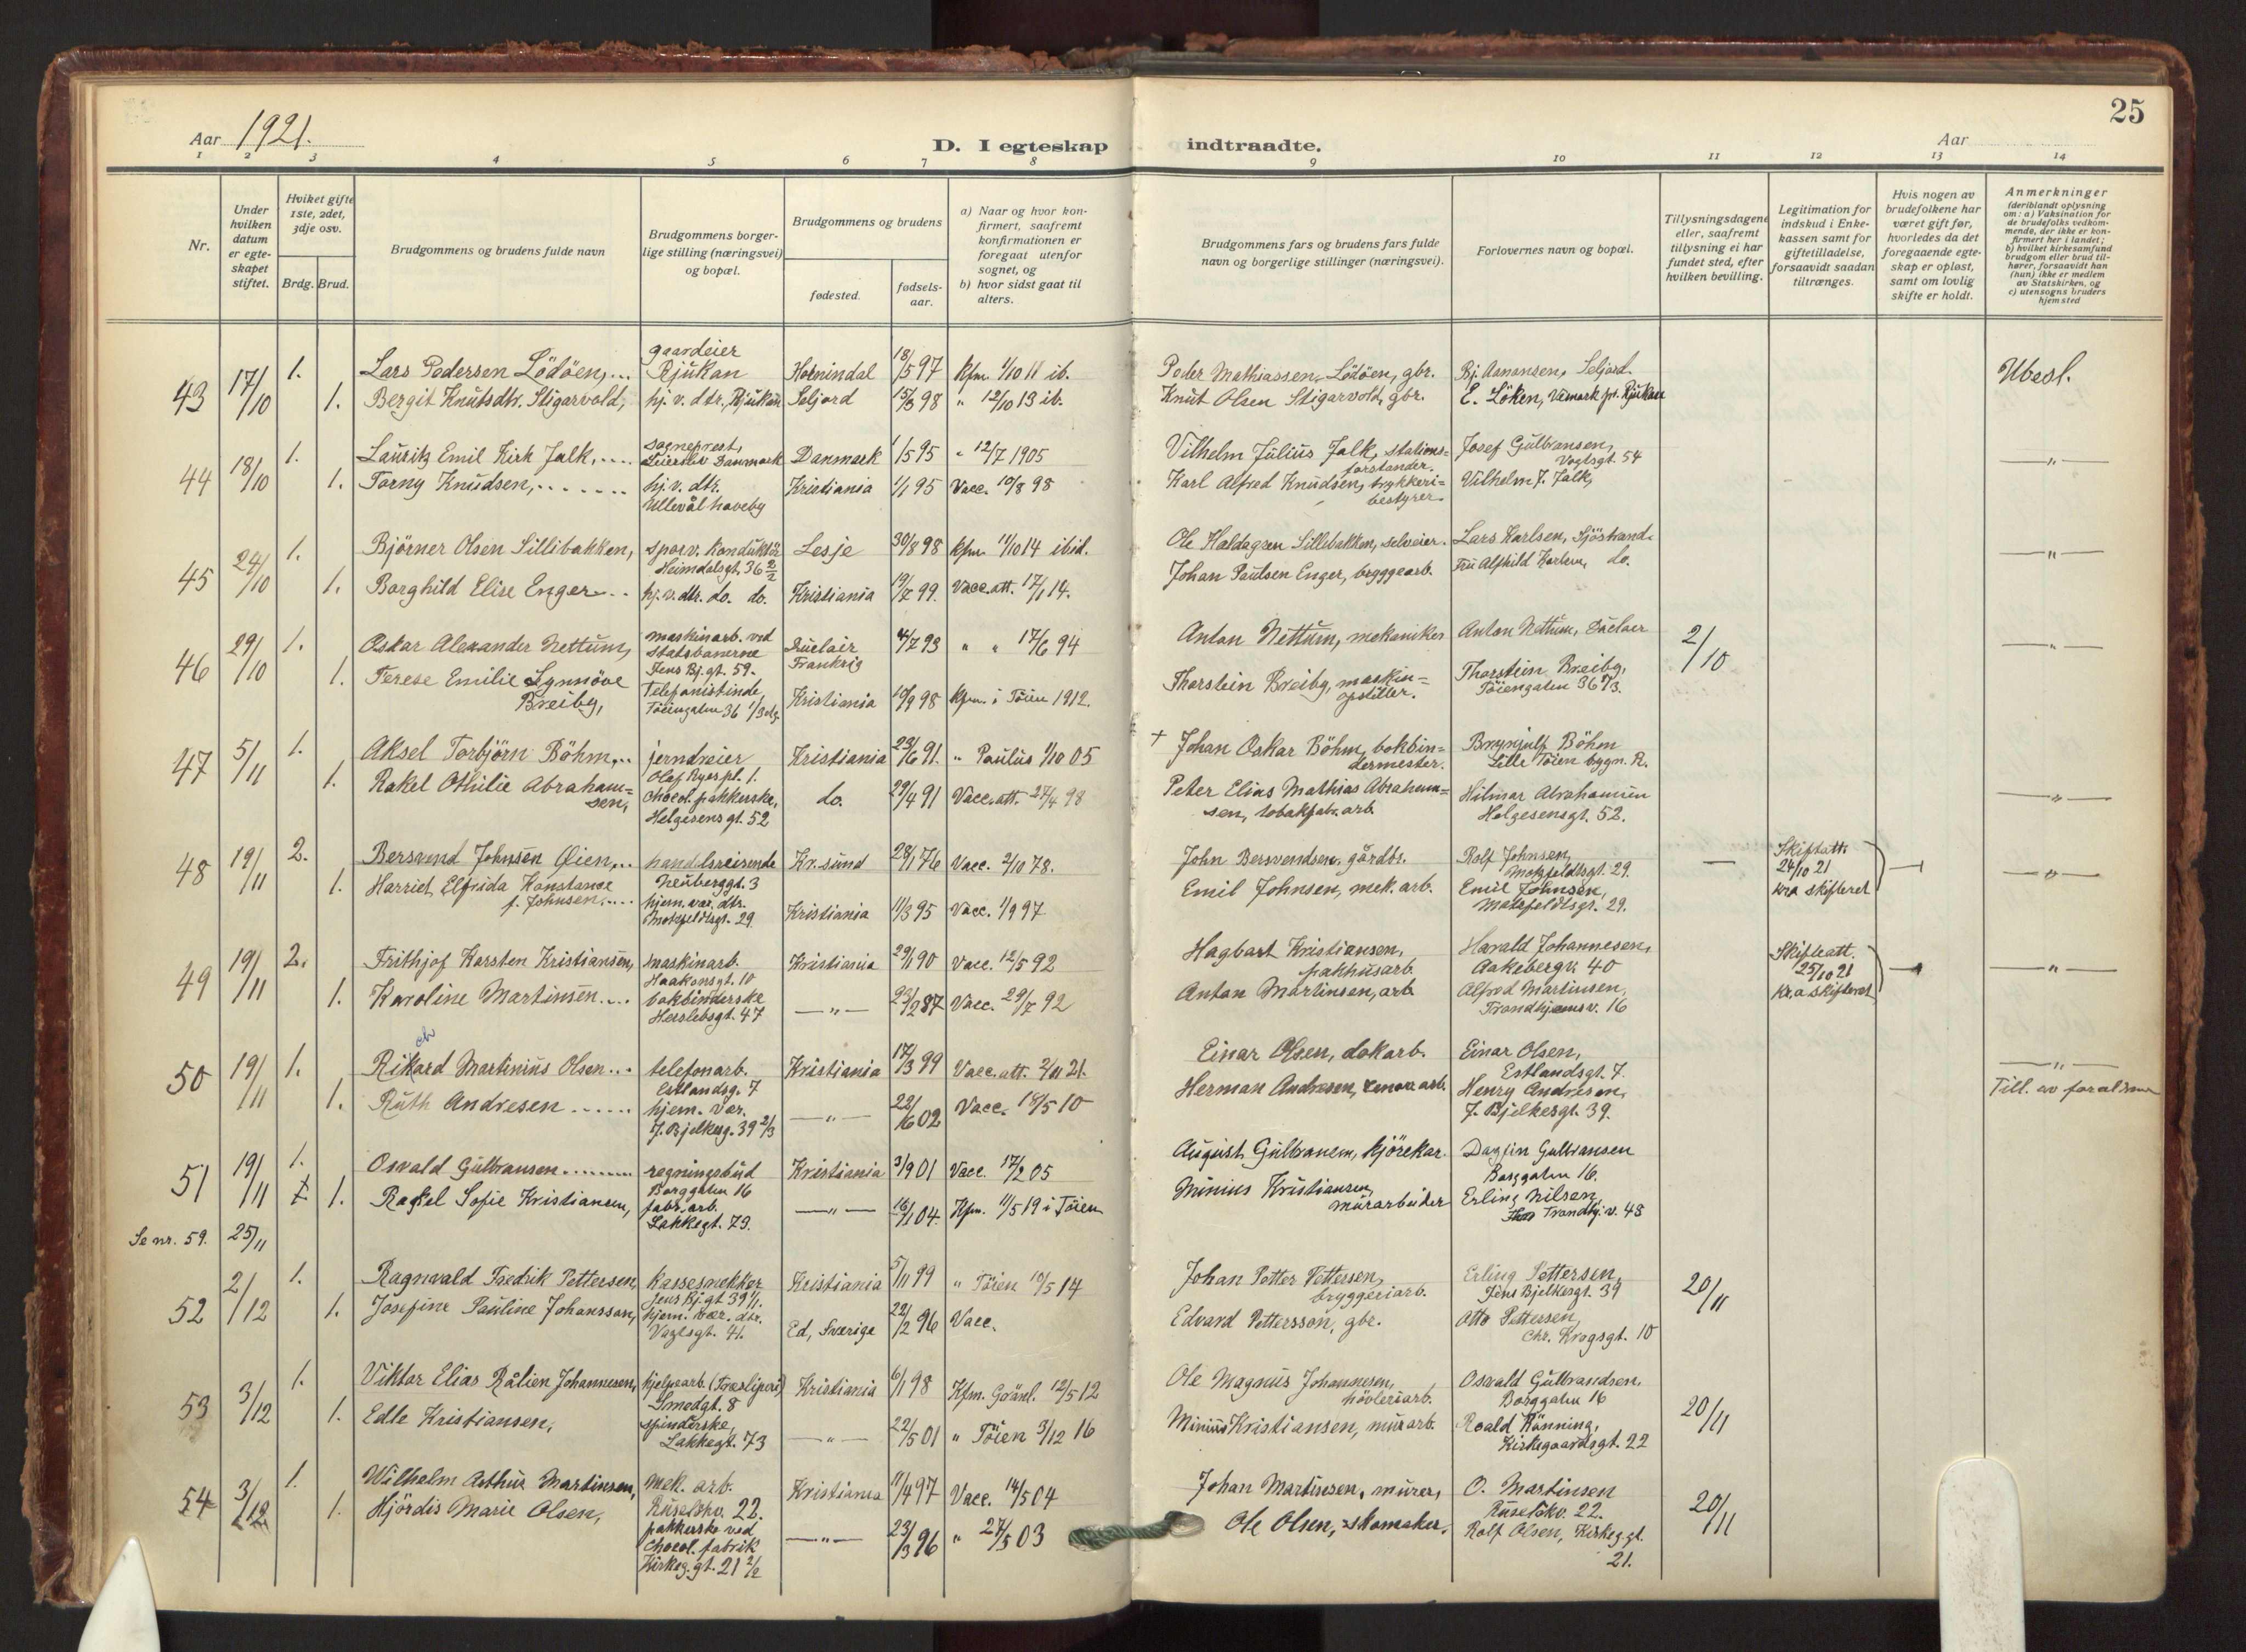 25
Aar 1921.
D. I egteskap indtraadte.
Aar
1 2 3 4 5 6 7 8 9 10 11 12 13 14
Nr.
Under hvilken datum er egteskapet stiftet.
Hviket gifte 1ste, 2det, 3dje osv.
Brdg. Brud.
Brudgommens og brudens fulde navn
Brudgommens borgerlige stilling (næringsvei) og bopæl.
Brudgommens og brudens
fødested.
fødselsaar.
a) Naar og hvor konfirmert, saafremt konfirmationen er foregaat utenfor sognet, og
b) hvor sidst gaat til alters.
Brudgommens fars og brudens fars fulde navn og borgerlige stillinger (næringsvei).
Forlovernes navn og bopæl.
Tillysningsdagene eller, saafremt tillysning ei har fundet sted, efter hvilken bevilling.
Legitimation for indskud i Enkekassen samt for giftetilladelse, forsaavidt saadan tiltrænges.
Hvis nogen av brudefolkene har været gift før, hvorledes da det foregaaende egteskap er opløst, samt om lovlig skifte er holdt.
Anmerkninger (deriblandt oplysning om: a) Vaksination for de brudefolks vedkommende, der ikke er konfirmert her i landet; b) hvilket kirkesamfund brudgom eller brud tilhører, forsaavidt han (hun) ikke er medlem av Statskirken, og c) utensogns bruders hjemsted
43 17/10 1. Lars Pedersen Lödöen, gaardeier Rjukan Hornindal 18/5 97 Kfm. 1/10 11 ib. Peder Mathiassen Lödöen, gbr. Bj. Aanansen, Seljord. Ubesl.
1. Bergit Knutsdtr. Stigarvold, hj. v. dtr., Rjukan Seljord 15/3 98 " 12/10 13 ib. Knut Olsen Stigarvold, gbr. E. Löken, Vemark pr. Rjukan
44 18/10 1. Lauritz Emil Kirk Falk, sogneprest, Danmark Danmark 1/5 95 " 12/7 1905 Vilhelm Julius Falk, stations=forstander. Josef Gulbransen, Vogtsgt. 54 —"—
1. Torny Knudsen, hj. v. dtr. Ullevål haveby Kristiania 1/1 95 Vacc. 10/8 98 Karl Alfred Knudsen, trykkeri=bestyrer. Vilhelm J. Falk,
45 24/10 1. Björner Olsen Sillibakken, sporv. konduktör Heimdalsgt. 36 2/2 Lesje 30/8 98 Kfm. 11/10 14 ibid. Ole Haldagsen Sillibakken, selveier. Lars Karlsen, Sjöstrand. —"—
1. Borghild Elise Enger hj. v. dtr. do. do. Kristiania 19/7 99. Vacc. att. 17/1 14. Johan Paulsen Enger, bryggearb. Fru Alfhild Karlsen, do.
46 29/10 1. Oskar Alexander Nettum, maskinarb. ved statsbanerne Jens Bj. gt. 59. Frankrig 4/7 93 " " 17/6 94 Anton Nettum, mekaniker Anton Nettum, 2/10 —"—
1. Terese Emilie Synnöve Breiby, Telefonistinde, Töiengaten 36 1/3 etg. Kristiania 10/9 98 Kfm. i Töien 1912. Thorstein Breiby, maskin=opstiller. Thorstein Breiby, Töiengaten 36 1/3.
47 5/11 1. Aksel Torbjörn Böhm, jerndreier Olaf Ryes pl. 1. Kristiania 23/6 91. " Paulus 1/10 05 + Johan Oskar Böhm, bokbin=dermester. Brynjulf Böhm Lille Töien bygn. R.
1. Rakel Othilie Abraham=sen, chocol. pakkerske, Helgesens gt. 52 do. 29/4 91 Vacc. att. 27/4 98 Peter Elias Mathias Abraham=sen, tobakfabr. arb. Hilmar Abrahamsen Helgesensgt. 52. —"—
48 19/11 2. Bersvend Johnsen Öien, handelsreisende Neuberggt. 3 Kr.sund 28/1 76 Vacc. 2/10 78. John Bersvendsen, gårdbr. Rolf Johnsen, Motzfeldtsgt. 29. — Skifteatt. 24/10 21 Kra skifteret —"—
1. Harriet Elfrida Konstanse f. Johnsen, hjem. vær. dtr. Motzfeldtsgt. 29 Kristiania 11/3 95 Vacc. 1/9 97 Emil Johnsen, mek. arb. Emil Johnsen, Motzfeldtsgt. 29.
49 19/11 2. Frithjof Karsten Kristiansen, maskinarb. Haakonsgt. 10 Kristiania 29/1 90 Vacc. 12/5 92 Hagbart Kristiansen, pakhusarb. Harald Johannesen, Aakebergv. 40 Skifteatt. 25/10 21 Kra skifteret —"—
1. Karoline Martinsen bokbinderske Herslebsgt. 47 —"— 23/2 87 Vacc. 29/7 92 Anton Martinsen, arb. Alfred Martinsen, Trondhjemsv. 16
50 19/11 1. Rikard ch Martinius Olsen telefonarb. Estlandsg. 7 Kristiania 17/3 99 Vacc. att. 2/11 21. Einar Olsen, dokarb. Einar Olsen, Estlandsgt. 7. —"—
1. Ruth Andresen hjem. vær. J. Bjelkesg. 39 2/3 —"— 22/6 02 Vacc. 18/5 10 Herman Andresen, renov. arb. Henry Andresen, J. Bjelkesgt. 39. Till. av forældrene
51 19/11 1. Osvald Gulbransen regningsbud Borggaten 16 Kristiania 3/9 01 Vacc. 17/2 05 August Gulbransen, kjörekar. Dagfin Gulbransen Borggaten 16.
1. Rakel Sofie Kristiansen, fabr. arb. Lakkegt. 73. —"— 16/1 04. Kfm. 11/5 19 i Töien Minius Kristiansen, murarbeider Erling Nilsen, Trondhj. v. 48
Se nr. 59. 25/11
52 2/12 1. Ragnvald Fredrik Pettersen, kassesnekker Jens Bj. gt 39 1/1. Kristiania 5/11 99 " Töien 10/5 14 Johan Petter Pettersen, bryggeriarb. Erling Pettersen, Jens Bjelkesgt. 39 20/11
1. Josefine Pauline Johansson, hjem. vær. dtr. Vogtsgt. 41. Ed, Sverige 22/2 96 Vacc. Edvard Pettersson, gbr. Otto Pettersen, Chr. Krogsgt. 10
53 3/12 1. Viktor Elias Rålien Johannesen, hjelpearb. (Træsliperi) Smedgt. 8 Kristiania 6/1 98 Kfm. Grönl. 12/5 12 Ole Magnus Johannesen, hövleriarb. Osvald Gulbrandsen, Borggaten 16 20/11
1. Edle Kristiansen, spinderske, Lakkegt. 73 —"— 22/5 01 " Töien 3/12 16 Minius Kristiansen, murarb. Roald Rönning, Kirkegaardsgt. 22
54 3/12 1. Wilhelm Arthur Martinsen, mek. arb. Ruselökv. 22. Kristiania 11/4 97 Vacc. 14/5 04 Johan Martinsen, murer, O. Martinsen Ruselökv. 22. 20/11
1. Hjördis Marie Olsen, pakkerske ved chocol. fabrik Kirkeg. gt. 21 2/2 —"— 23/3 96 " 27/5 03 Ole Olsen, skomaker, Rolf Olsen, Kirkeg.gt. 21.